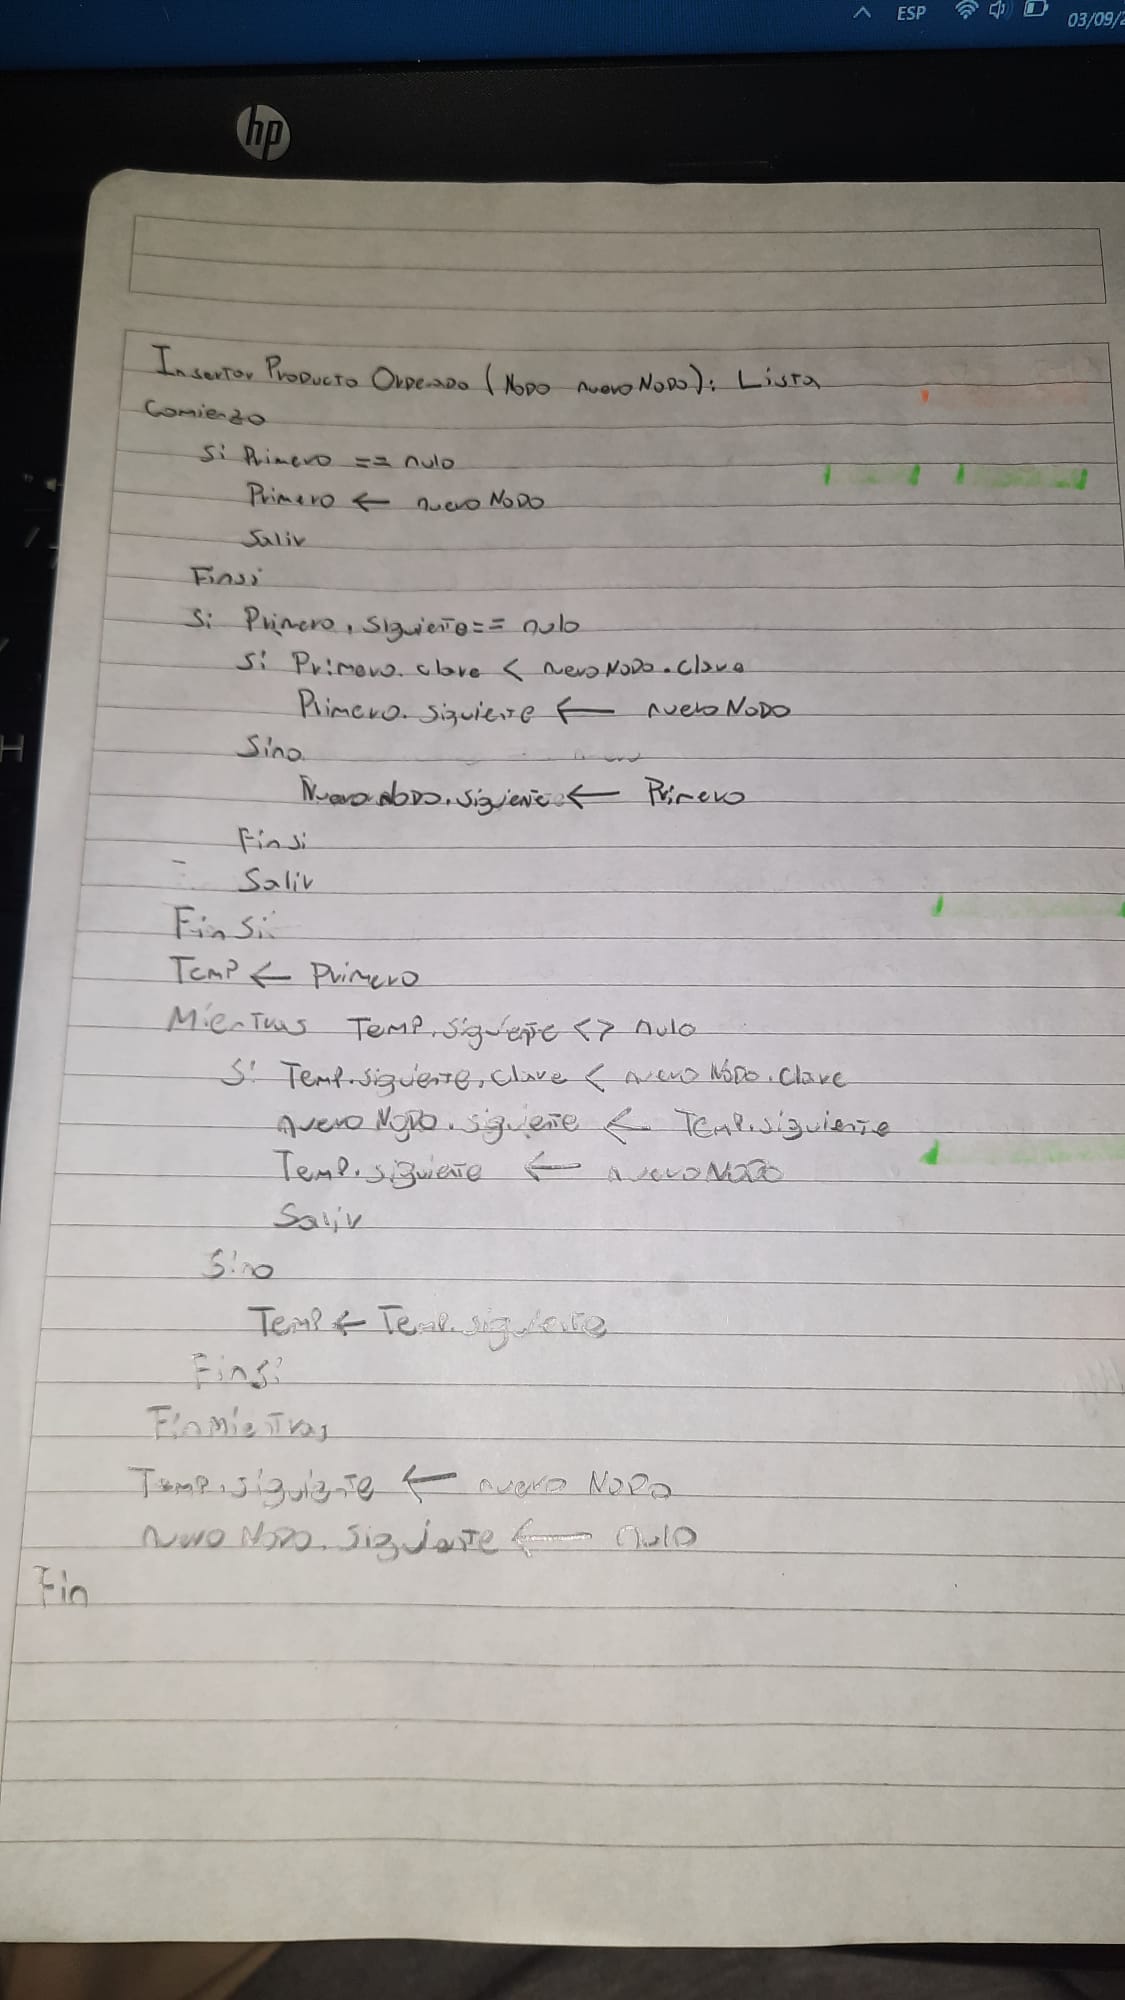 ESP 03/09/2
hp
Insertar Producto Ordenado (Nodo nuevo Nodo): Lista
Comienzo
Si Primero == nulo
Primero ← nuevo Nodo
Salir
Finsi
Si Primero. Siguiente == nulo
Si Primero. clave < nuevo Nodo. clave
Primero. Siguiente ← nuevo Nodo
Sino
Nuevo Nodo. siguiente ← Primero
Finsi
Salir
Fin Si
Temp ← Primero
Mientras Temp. siguiente <> nulo
Si Temp. siguiente. clave < nuevo Nodo. Clave
nuevo Nodo. siguiente ← Temp. siguiente
Temp. siguiente ← nuevo Nodo
Salir
Sino
Temp ← Temp. siguiente
Finsi
Fin Mientras
Temp. siguiente ← nuevo Nodo
nuevo Nodo. Siguiente ← nulo
Fin
H